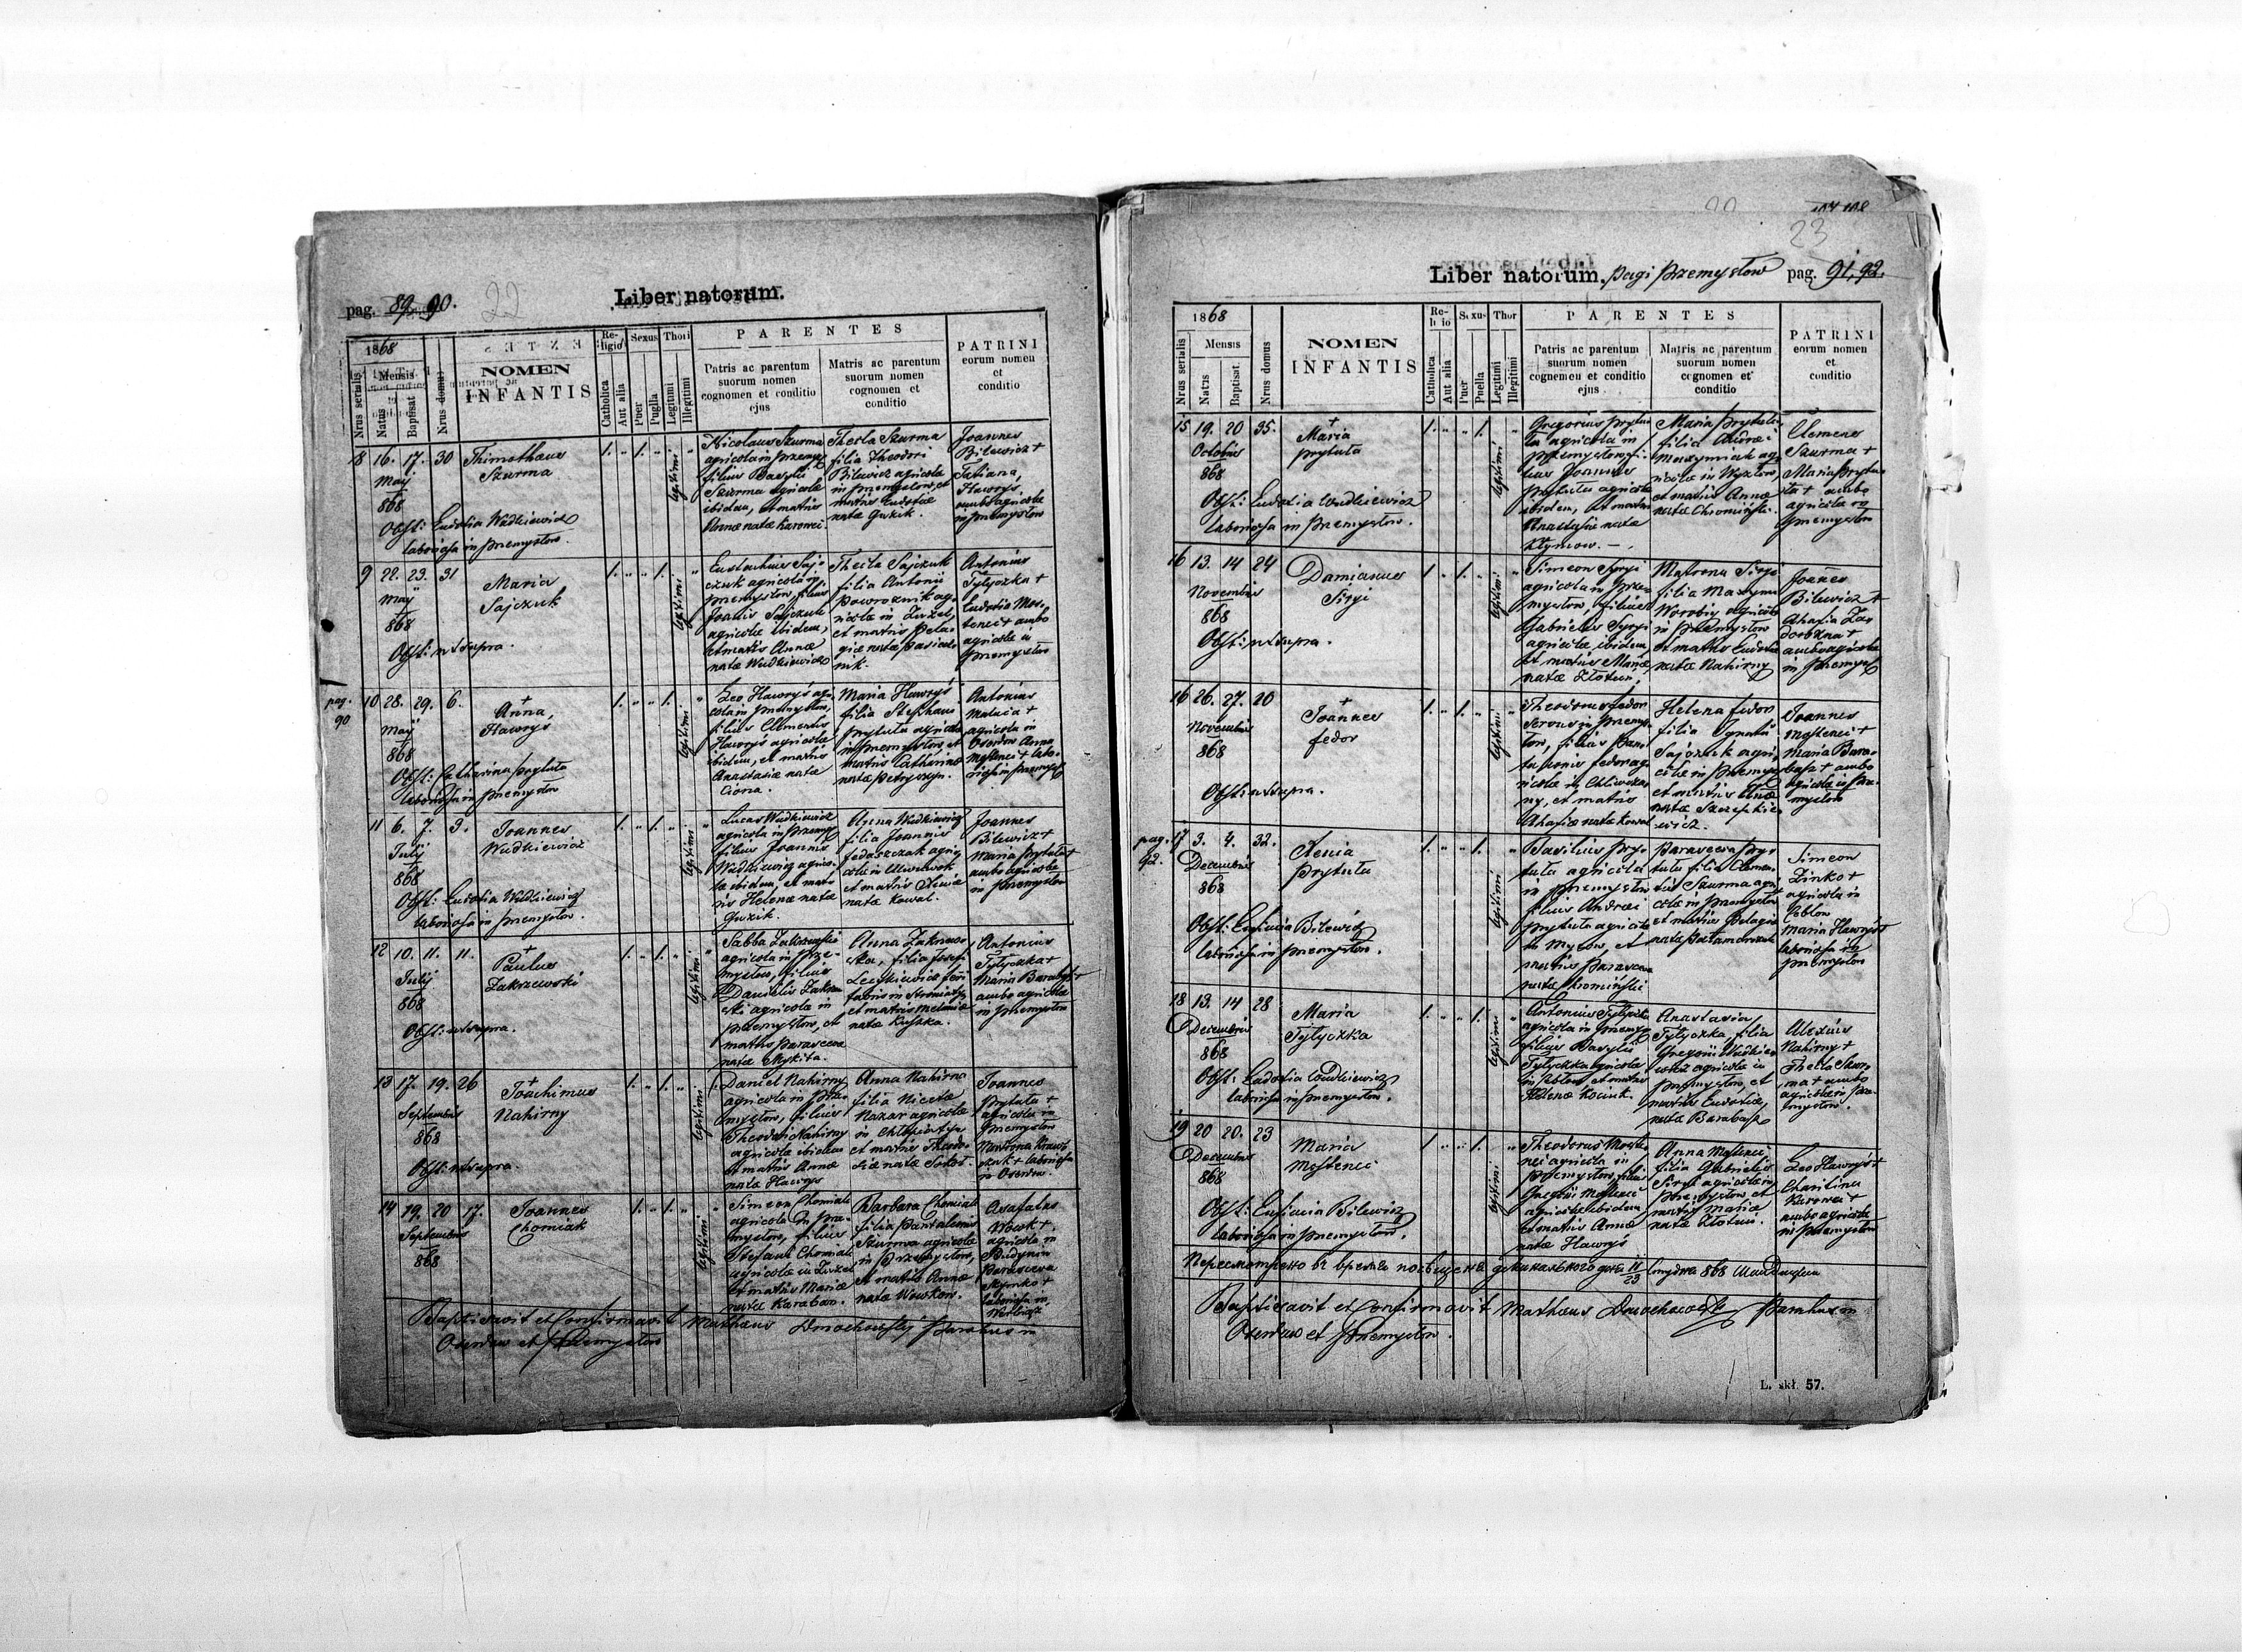 pag. 89. 90.
22
Liber natorum.
1868
Nrus serialis
Mensis
Natus
Baptisat
Nrus domus
NOMEN
INFANTIS
Religio
Catholica
Aut alia
Sexus
Puer
Puella
Thori
Legitimi
Illegitimi
PARENTES
Patris ac parentum
suorum nomen
cognomen et conditio
ejus
Matris ac parentum
suorum nomen
cognomen et
conditio
PATRINI
eorum nomen
et
conditio
8 16. 17. 30
May
868
Thimotheus
Szurma
1. " 1. " legitimi "
Nicolaus Szurma
agricola in Przemysłow
filius Basylii
Szurma agricolæ
ibidem, et matris
Annæ natæ Karowci
Thecla Szurma
filia Theodori
Bilewicz agricola
in Przemysłow, et
matris Eudociæ
natæ Guzik.
Joannes
Bilewicz +
Tatiana
Hawryś
ambo agricolæ
in Przemysłow
Obst: Eudotia Wudkiewicz
laboriosa in Przemysłow.
9 22. 23. 31
May
868
Maria
Sajczuk
1. " " 1. legitimi "
Eustachius Saj-
czuk agricola in
Przemysłow, filius
Joanis Sajczuk
agricolæ ibidem,
et matris Annæ
natæ Wudkiewicz
Thecla Sajczuk
filia Antonii
Powroznik ag-
ricolæ in Zużel
et matris Pela-
giæ natæ
Antonius
Tytyczka +
Eudotia Mos-
tenci + ambo
agricolæ in
Przemysłow
Obst: ut supra.
pag.
90
10 28. 29. 6.
May
868
+
Anna
Hawryś
1. " " 1. legitimi "
Leo Hawryś agri-
cola in Przemysłow,
filius Clementis
Hawryś agricolæ
ibidem, et matris
Anastasiæ natæ
Ciona.
Maria Hawryś
filia Stephani
Prytuła agricolæ
in Przemysłow et
matris Catharinæ
natæ Petryszyn.
Antonius
+
agricola in
Oserdow Anna
Mostenci + labo-
riosa in Przemysł
Obst: Catharina Prytuła
laboriosa in Przemysłow
11 6. 7. 3.
July
868
Joannes
Wudkiewicz
1. " 1. " legitimi "
Lucas Wudkiewicz
agricola in Przemysł
filius Joannis
Wudkiewicz agrico-
læ ibidem, et mat-
ris Helenæ natæ
Guzik.
Anna Wudkiewicz
filia Joannis
Fedaszczak agri-
colæ in
et matris Xeniæ
natæ Kowal.
Joannes
Bilewicz +
Maria Prytuła +
ambo agricolæ
in Przemysłow
Obst: Eudotia Wudkiewicz
laboriosa in Przemysłow.
12 10. 11. 11.
July
868
+
Paulus
Zakrzewski
1. " 1. " legitimi "
Sabba Zakrzewski
agricola in Prze-
mysłow, filius
Danielis Zakrzew-
ski agricola in
Przemysłow, et
matris Parasceva
natæ Mykita.
Anna Zakrzew-
ska, filia Josefi
et matris Melaniæ
natæ
Antonius
Tytyczka +
Maria Barabasz +
ambo agricolæ
in Przemysłow
Obst: ut supra.
13 17. 19. 26
Septembris
868
+
Joachimus
Nahirny
1. " 1. " legitimi "
Daniel Nahirny
agricola in Prze-
mysłow, filius
Theodori Nahirny
agricolæ ibidem
et matris Annæ
natæ Hawryś
Anna Nahirna
filia Nicetæ
Nazar agricolæ
in
et matris Theodo-
siæ natæ
Joannes
Prytuła +
agricola in
Przemysłow
Matrona Kraw-
czuk + laboriosa
in Oserdow
Obst: ut supra.
14 19. 20 17.
Septembris
868
Joannes
Chomiak
1. " 1. " legitimi "
Simeon Chomiak
agricola in Prze-
mysłow, filius
Stefani Chomiak
agricolæ in Zużel
et matris Mariæ
natæ Karaban.
Barbara Chomiak
filia Pantalemis
Szurma agricolæ
in Przemysłow,
et matris Annæ
natæ Wowkow.
Asafatus
Wowk +
agricola in
Budynin
Parasceva
+
laboriosa in
Baptisavit et Confirmavit Mathæus Dmochowsky Parochus in
Oserdow et Przemysłow
23
Liber natorum, pagi Przemysłow pag. 91, 92.
1868
Nrus serialis
Mensis
Natus
Baptisat.
Nrus domus
NOMEN
INFANTIS
Religio
Catholica
Aut alia
Sexus
Puer
Puella
Thor
Legitimi
Illegitimi
PARENTES
Patris ac parentum
suorum nomen
cognomen et conditio
ejus
Matris ac parentum
suorum nomen
cognomen et
conditio
PATRINI
eorum nomen
et
conditio
15 19. 20 35.
Octobris
868
+
Maria
Prytuła
1. " " 1. legitimi "
Gregorius Prytu-
ła agricola in
Przemysłow, fi-
lius Joannis
Prytuła agricolæ
ibidem, et matris
Anastasiæ natæ
Klymow.
Maria Prytuła,
filia Andrei
Maxymiak ag-
ricolæ in Wyżlow,
et matris Annæ
natæ Chromiński.
Clemens
Szurma +
Maria Prytu-
ła + ambo
agricolæ in
Przemysłow
Obst: Eudotia Wudkiewicz
laboriosa in Przemysłow.
16 13. 14 24
Novembris
868
Damianus
Siryi
1. " 1. " legitimi "
Simeon Syryi
agricola in Prze-
mysłow, filius
Gabrielis Syryi
agricolæ ibidem
et matris Mariæ
natæ
Matrona Siryi
filia Maxymi
Worobiy agricolæ
in Przemysłow
et matris Eudotiæ
natæ Nahirny
Joannes
Bilewicz +
Ahafia
+
ambo agricolæ
in Przemysł
Obst: ut supra.
16 26. 27. 20
Novembris
868
+
Joannes
Fedor
1. " 1. " legitimi "
Theodorus Fedor
in Przemys-
łow, filius
Fedor ag-
ricolæ in
et matris
Ahafiæ natæ Kowal
Helena Fedor
filia Ignatii
Sajczuk agri-
colæ in Przemysł
et matris Annæ
natæ
Joannes
Mostenci +
Maria Bara-
basz + ambo
agricolæ in Prze-
mysłow
Obst: ut supra.
pag.
92.
17 3. 4. 32.
Decembris
868
Xenia
Prytuła
1. " " 1. legitimi "
Basilius Pry-
tuła agricola
in Przemysłow
filius Andrei
Prytuła agricolæ
in Mycow, et
matris Parasceva
natæ Chromiński
Parasceva Pry-
tuła filia Clemen-
tis Szurma agri-
colæ in Przemysłow
et matris Pelagiæ
natæ
Simeon
Zinko +
agricola in
Maria Hawryś +
laboriosa in
Przemysłow
Obst: Eufimia Bilewicz
laboriosa in Przemysłow.
18 13. 14 28
Decembris
868
Maria
Tytyczka
1. " " 1. legitimi "
Antonius Tytyczka
agricola in Przemysł
filius Basylii
Tytyczka agricolæ
et matris
Helenæ Kociuk.
Anastasia
Tytyczka, filia
Gregorii Wudkie-
wicz agricolæ in
Przemysłow, et
matris Eudotiæ
natæ Barabasz
Alexius
Nahirny +
Thecla Szur-
ma + ambo
agricolæ in Prze-
mysłow.
Obst: Eudotia Wudkiewicz
laboriosa in Przemysłow.
19 20 20. 23
Decembris
868
Maria
Mostenci
1. " " 1. legitimi "
Theodorus Moste-
nci agricola in
Przemysłow, filius
Gregorii Mostenci
agricolæ ibidem
et matris Annæ
natæ Hawryś
Anna Mostenci
filia Gabrielis
Siryi agricolæ in
Przemysłow et
matris Maria
natæ
Leo Hawryś +
Charitina
Karowci +
ambo agricolæ
in Przemysłow
Obst: Eufimia Bilewicz
laboriosa in Przemysłow.
Пересмотрено въ время посѣщенія деканального дня 11/23 868
Baptisavit et Confirmavit Mathæus Dmochowsky Parochus in
Oserdow et Przemysłow.
L. skł. 57.